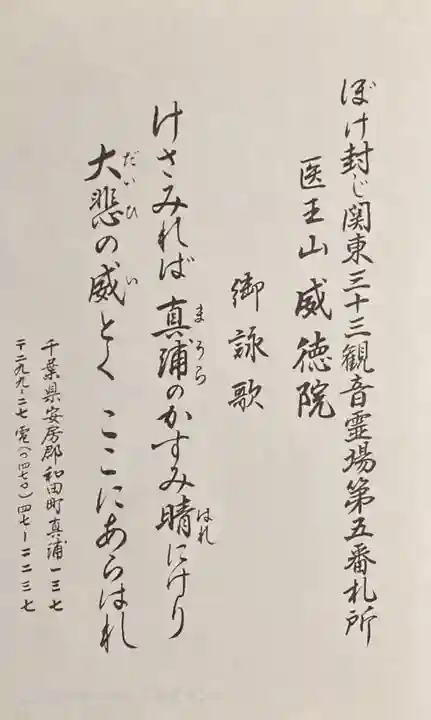 ぼけ封じ関東三十三観音霊場第五番札所
医王山 威徳院
御詠歌
けさみれば 真浦のかすみ晴にけり
まうら
はれ
大悲の威とく ここにあらはれ
だいひ
い
千葉県安房郡和田町真浦一三七
〒二九九-二七 電(〇四七〇)四七-二二三七